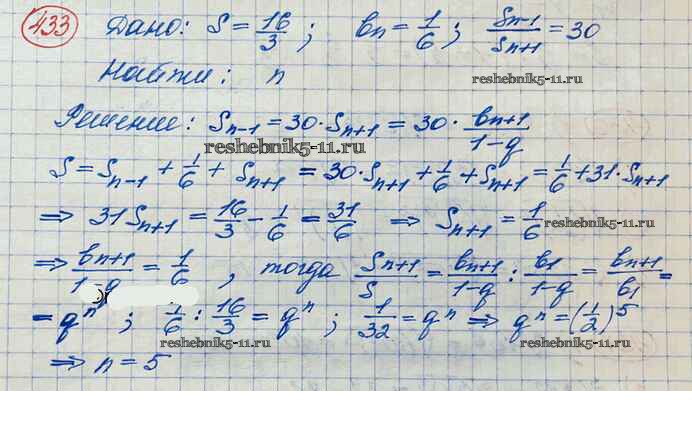 433 Дано: S = 16/3 ; bn = 1/6 ; Sn-1/Sn+1 = 30
Найти: n
reshebnik5-11.ru
Решение: Sn-1 = 30·Sn+1 = 30· bn+1/1-q
reshebnik5-11.ru
S = Sn-1 + 1/6 + Sn+1 = 30·Sn+1 + 1/6 + Sn+1 = 1/6 + 31·Sn+1
⇒ 31Sn+1 = 16/3 - 1/6 = 31/6 ⇒ Sn+1 = 1/6
reshebnik5-11.ru
⇒ bn+1/1-q = 1/6 , тогда Sn+1/S = bn+1/1-q : b1/1-q = bn+1/b1 =
= qⁿ ; 1/6 : 16/3 = qⁿ ; 1/32 = qⁿ ⇒ qⁿ = (1/2)⁵
reshebnik5-11.ru reshebnik5-11.ru
⇒ n = 5